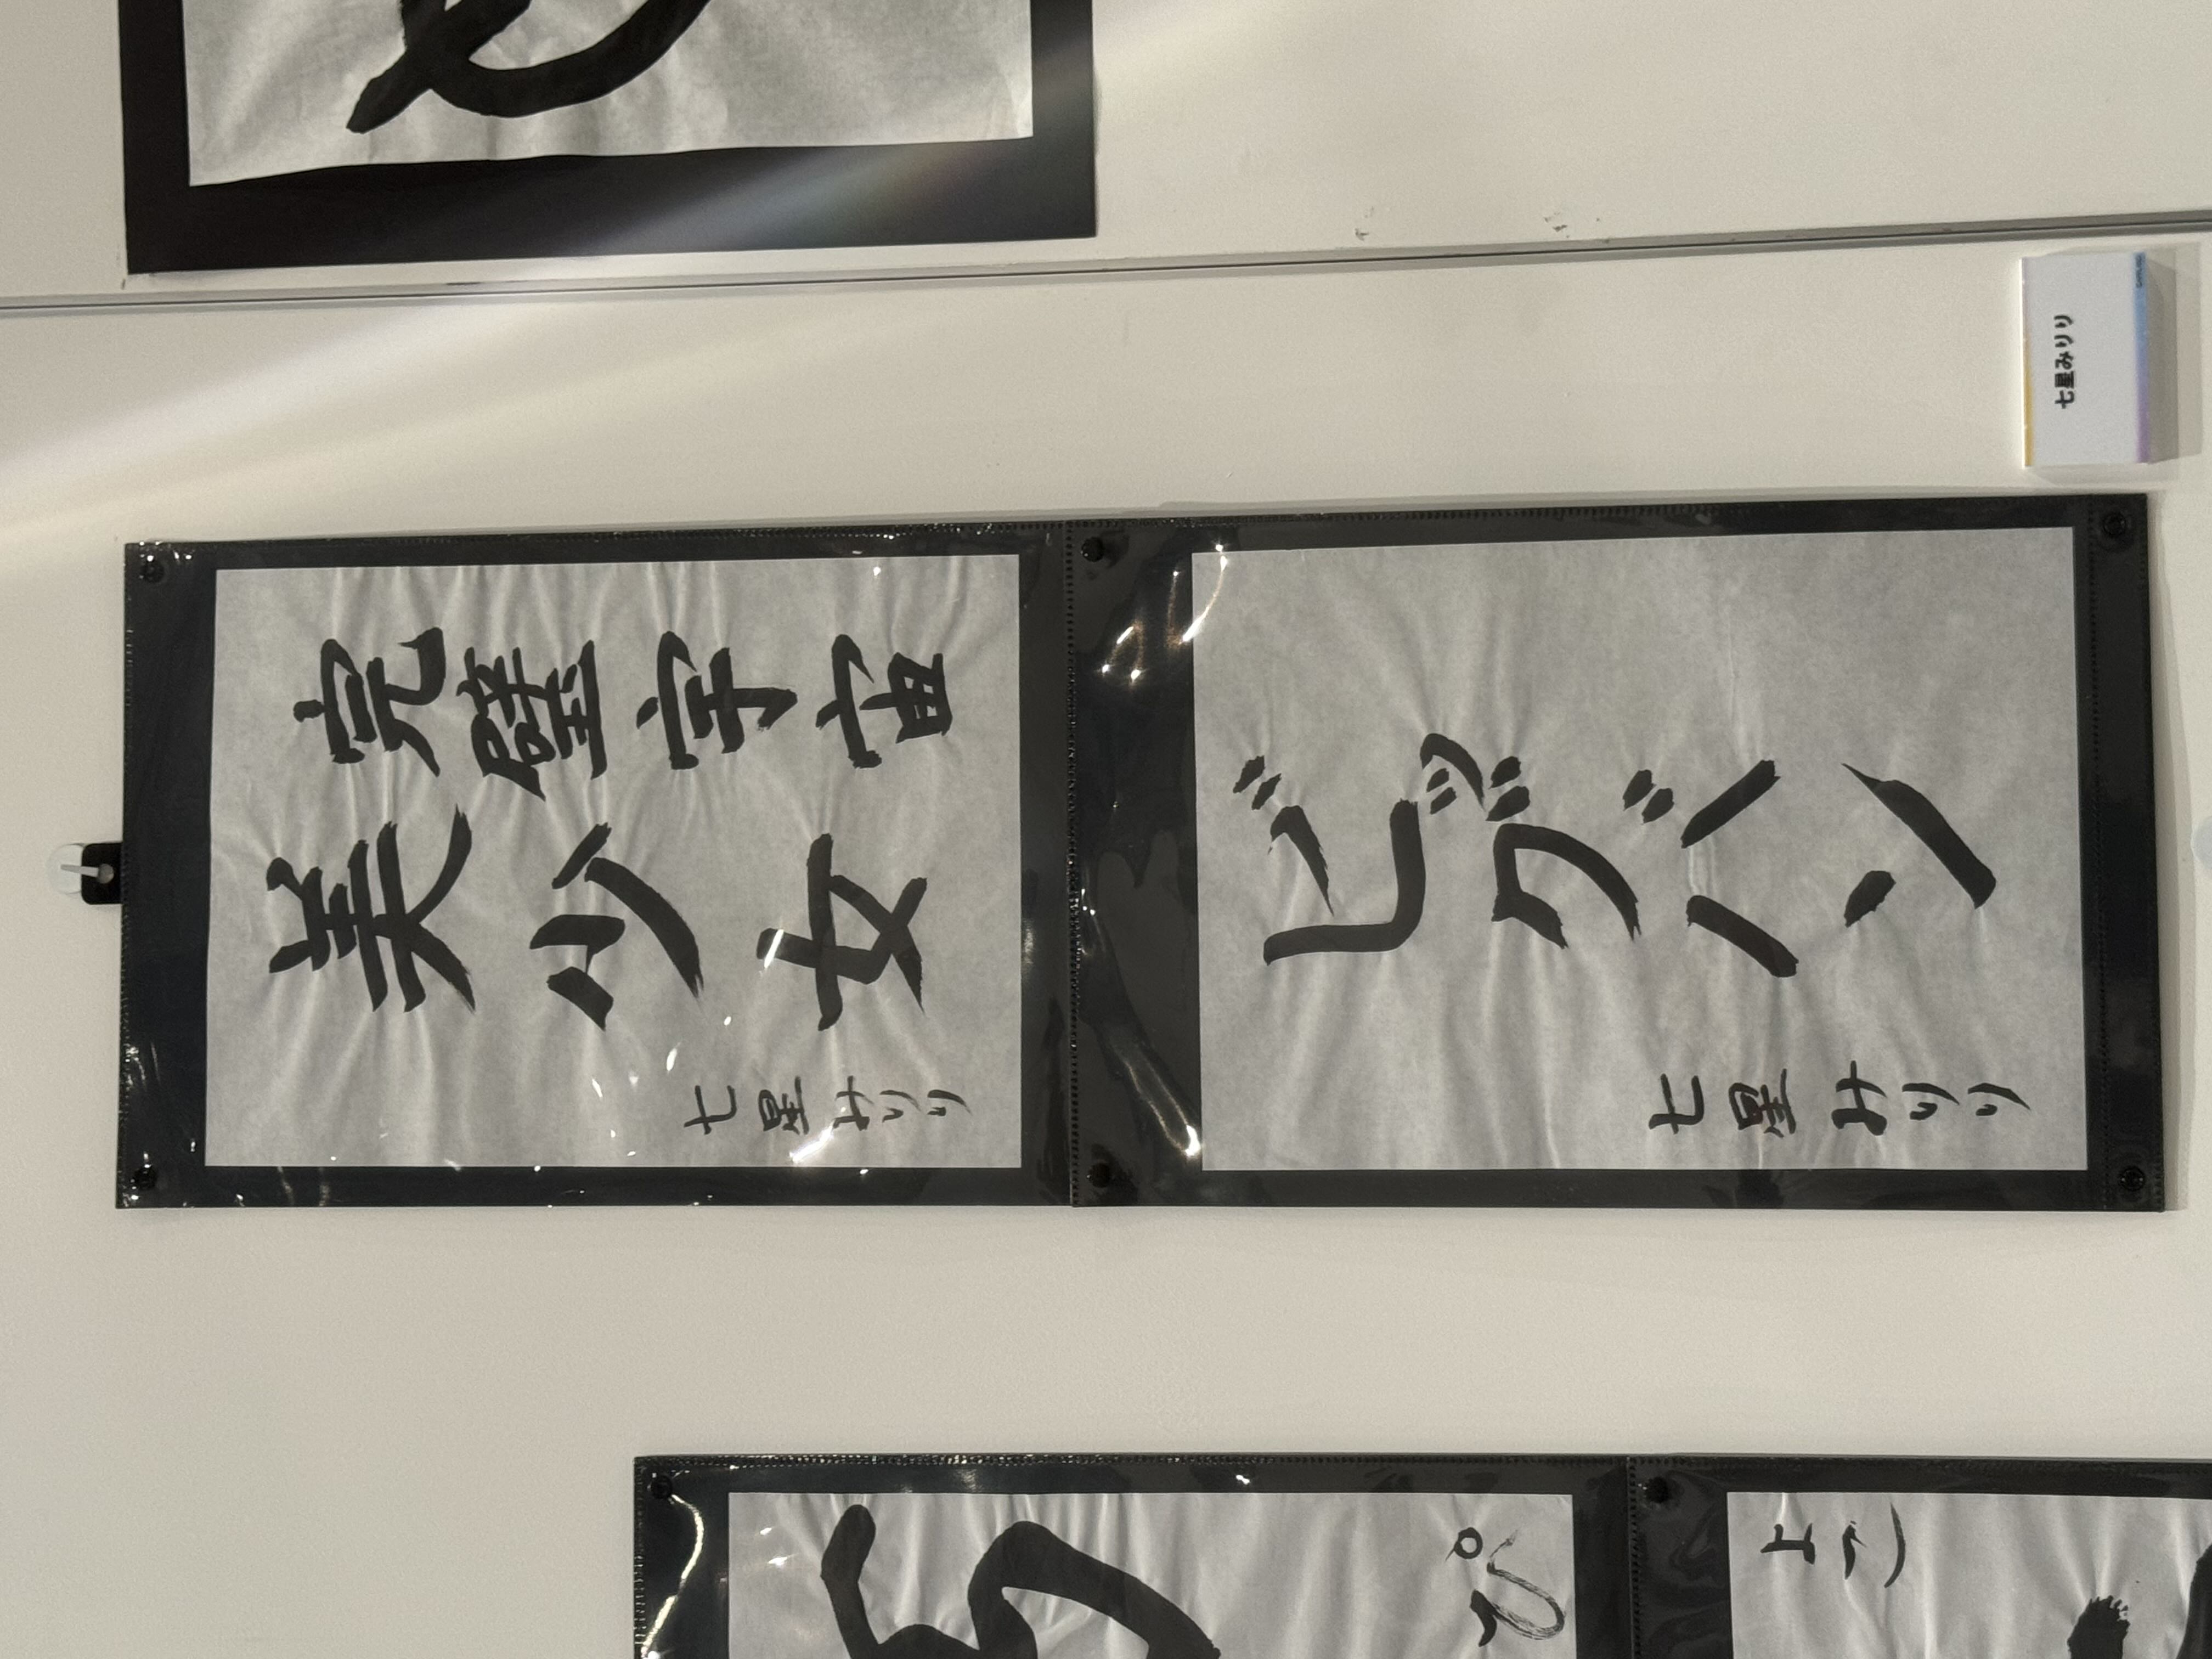 完璧宇宙
美少女
七星みりり
ビッグバン
七星みりり
七星みりり